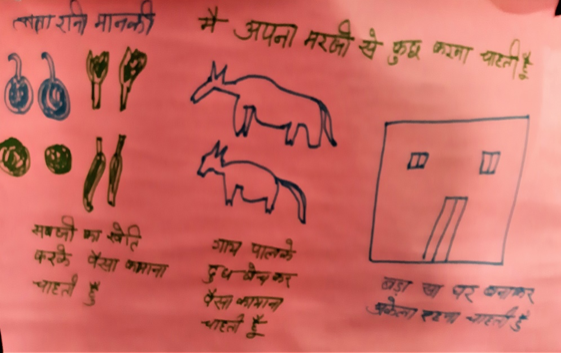 रानी मानकी
मै अपना मरजी से कुछ करना चाहती हूँ
सबजी का खेति
करके पैसा कमाना
चाहती हूँ
गाय पालके
दुध बेच कर
पैसा कामाना
चाहती हूँ
बड़ा सा घर बनाकर
अकेला रहना चाहती हूँ